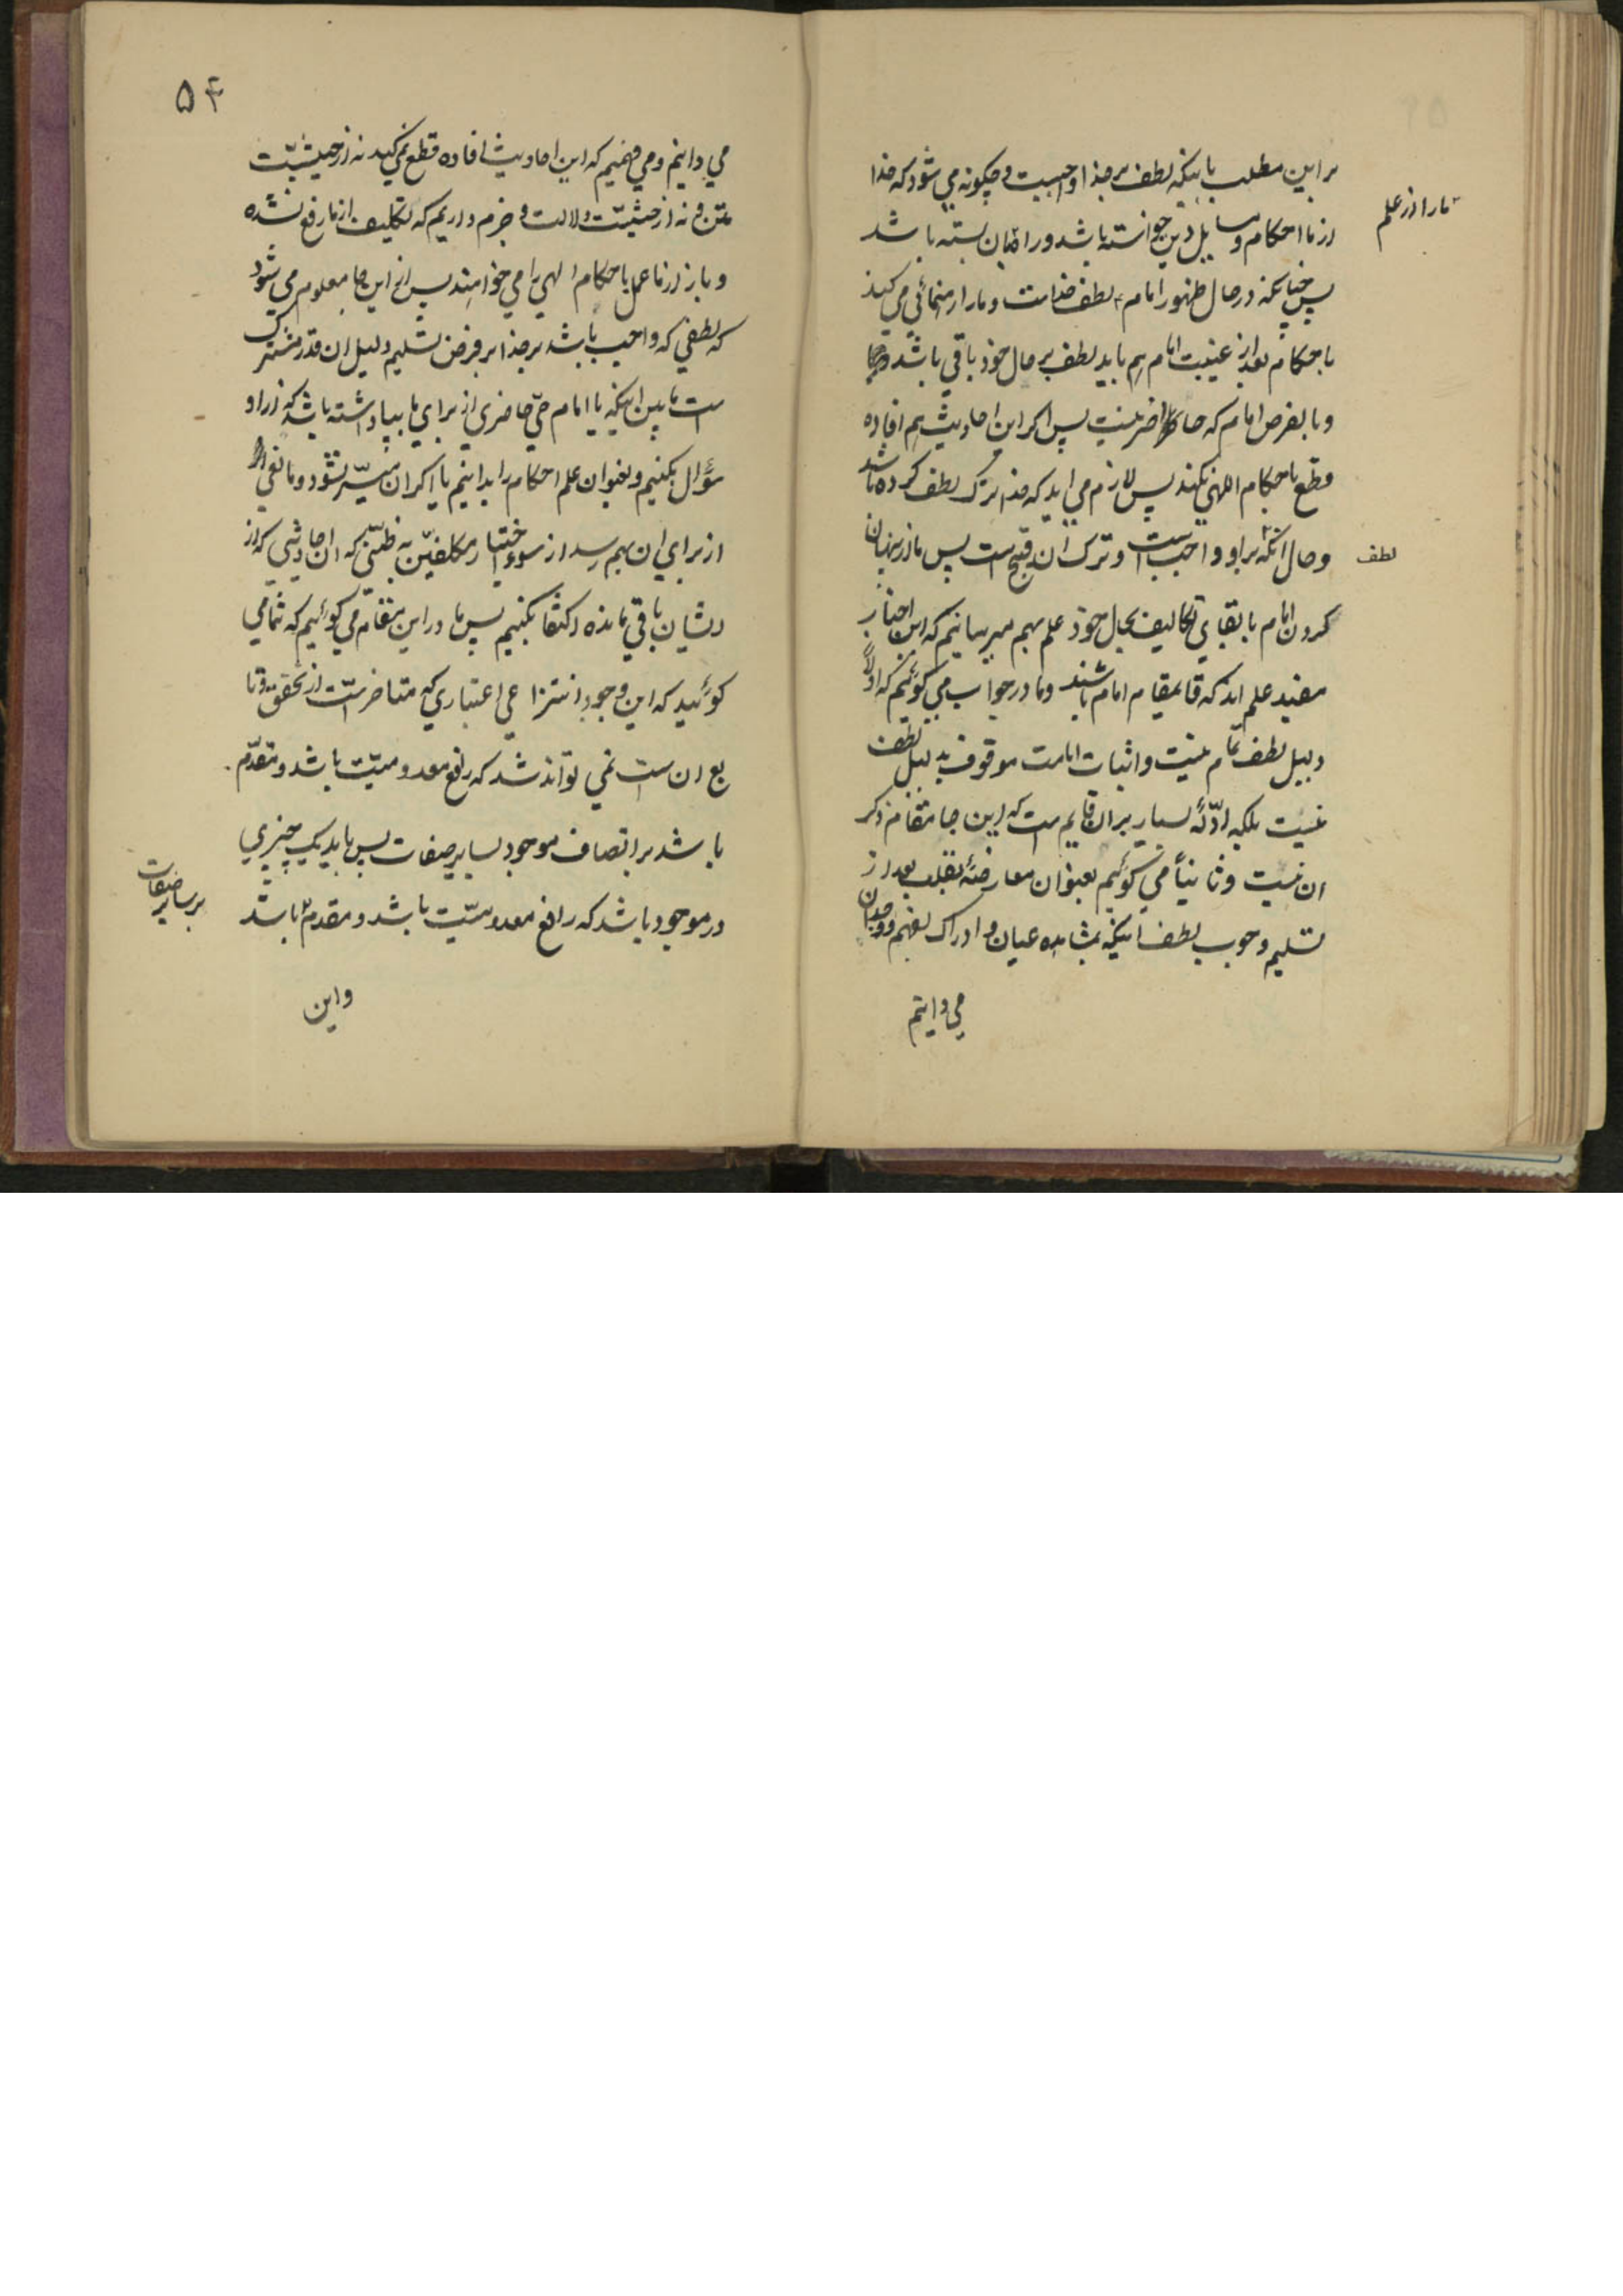 بر این مطلب باینکه لطف بر خدا واجبست و چگونه می شود که خدا
ما را از علم
از ما احکام و مسایل دین خواسته باشد و راه بسته باشد
پس چنانکه در حال ظهور امام لطف خداست و ما را رهنمائی می کند
باحکام بعد از غیبت امام هم باید لطف بر حال خود باقی باشد
و بالفرض امام که حاضر نیست پس اگر این احادیث هم افاده
قطع باحکام الهی نکند پس لازم می اید که خدا ترک لطف کرده باشد
و حال انکه بر او واجب است و ترک ان قبیح است پس ما از پنهان
لطف
کردن امام با بقای تکالیف بحال خود علم بهم میرسانیم که این اخبار
مفید علم اند که قایمقام امام باشند و ما در جواب می گوئیم که اولا
دلیل لطف تمام نیست و اثبات امامت موقوف بدلیل لطف
نیست بلکه ادلّهٔ بسیار بر ان قایم است که این جا مقام ذکر
ان نیست و ثانیاً می گوئیم بعنوان معارضهٔ بقلب بعد از
تسلیم وجوب لطف اینکه بمشاهده عیان و ادراک بفهم و وجدان
می دانیم
۵۴
می دانیم و می فهمیم که این احادیث افاده قطع نمی کند نه از حیثیّت
متن و نه از حیثیّت دلالت و جزم داریم که تکلیف از ما رفع نشده
و باز از ما عمل باحکام الهی را می خواهند پس از این جا معلوم می شود
که لطفی که واجب باشد بر خدا بر فرض تسلیم دلیل ان قدر مشترک
ست مابین اینکه یا امام حیّ حاضری از برای ما بپا داشته باشد که از او
سؤال بکنیم و بعنوان علم احکام را بدانیم یا اگر ان میسّر نشود و مانعی
از برای ان بهم رسد از سوء اختیار مکلفین به ظنّی که از احادیثی که از
ایشان باقی مانده اکتفا بکنیم پس ما در این مقام می گوئیم که شمامی
گوئید که این وجود انتزاعی اعتباری که متاخر است از تحقق و تا
بع ان ست نمی تواند شد که رافع معدومیّت باشد و مقدّم
باشد بر اتصاف موجود بسایر صفات پس باید یک چیزی
در موجود باشد که رافع معدومیّت باشد و مقدم باشد
بر سایر صفات
و این